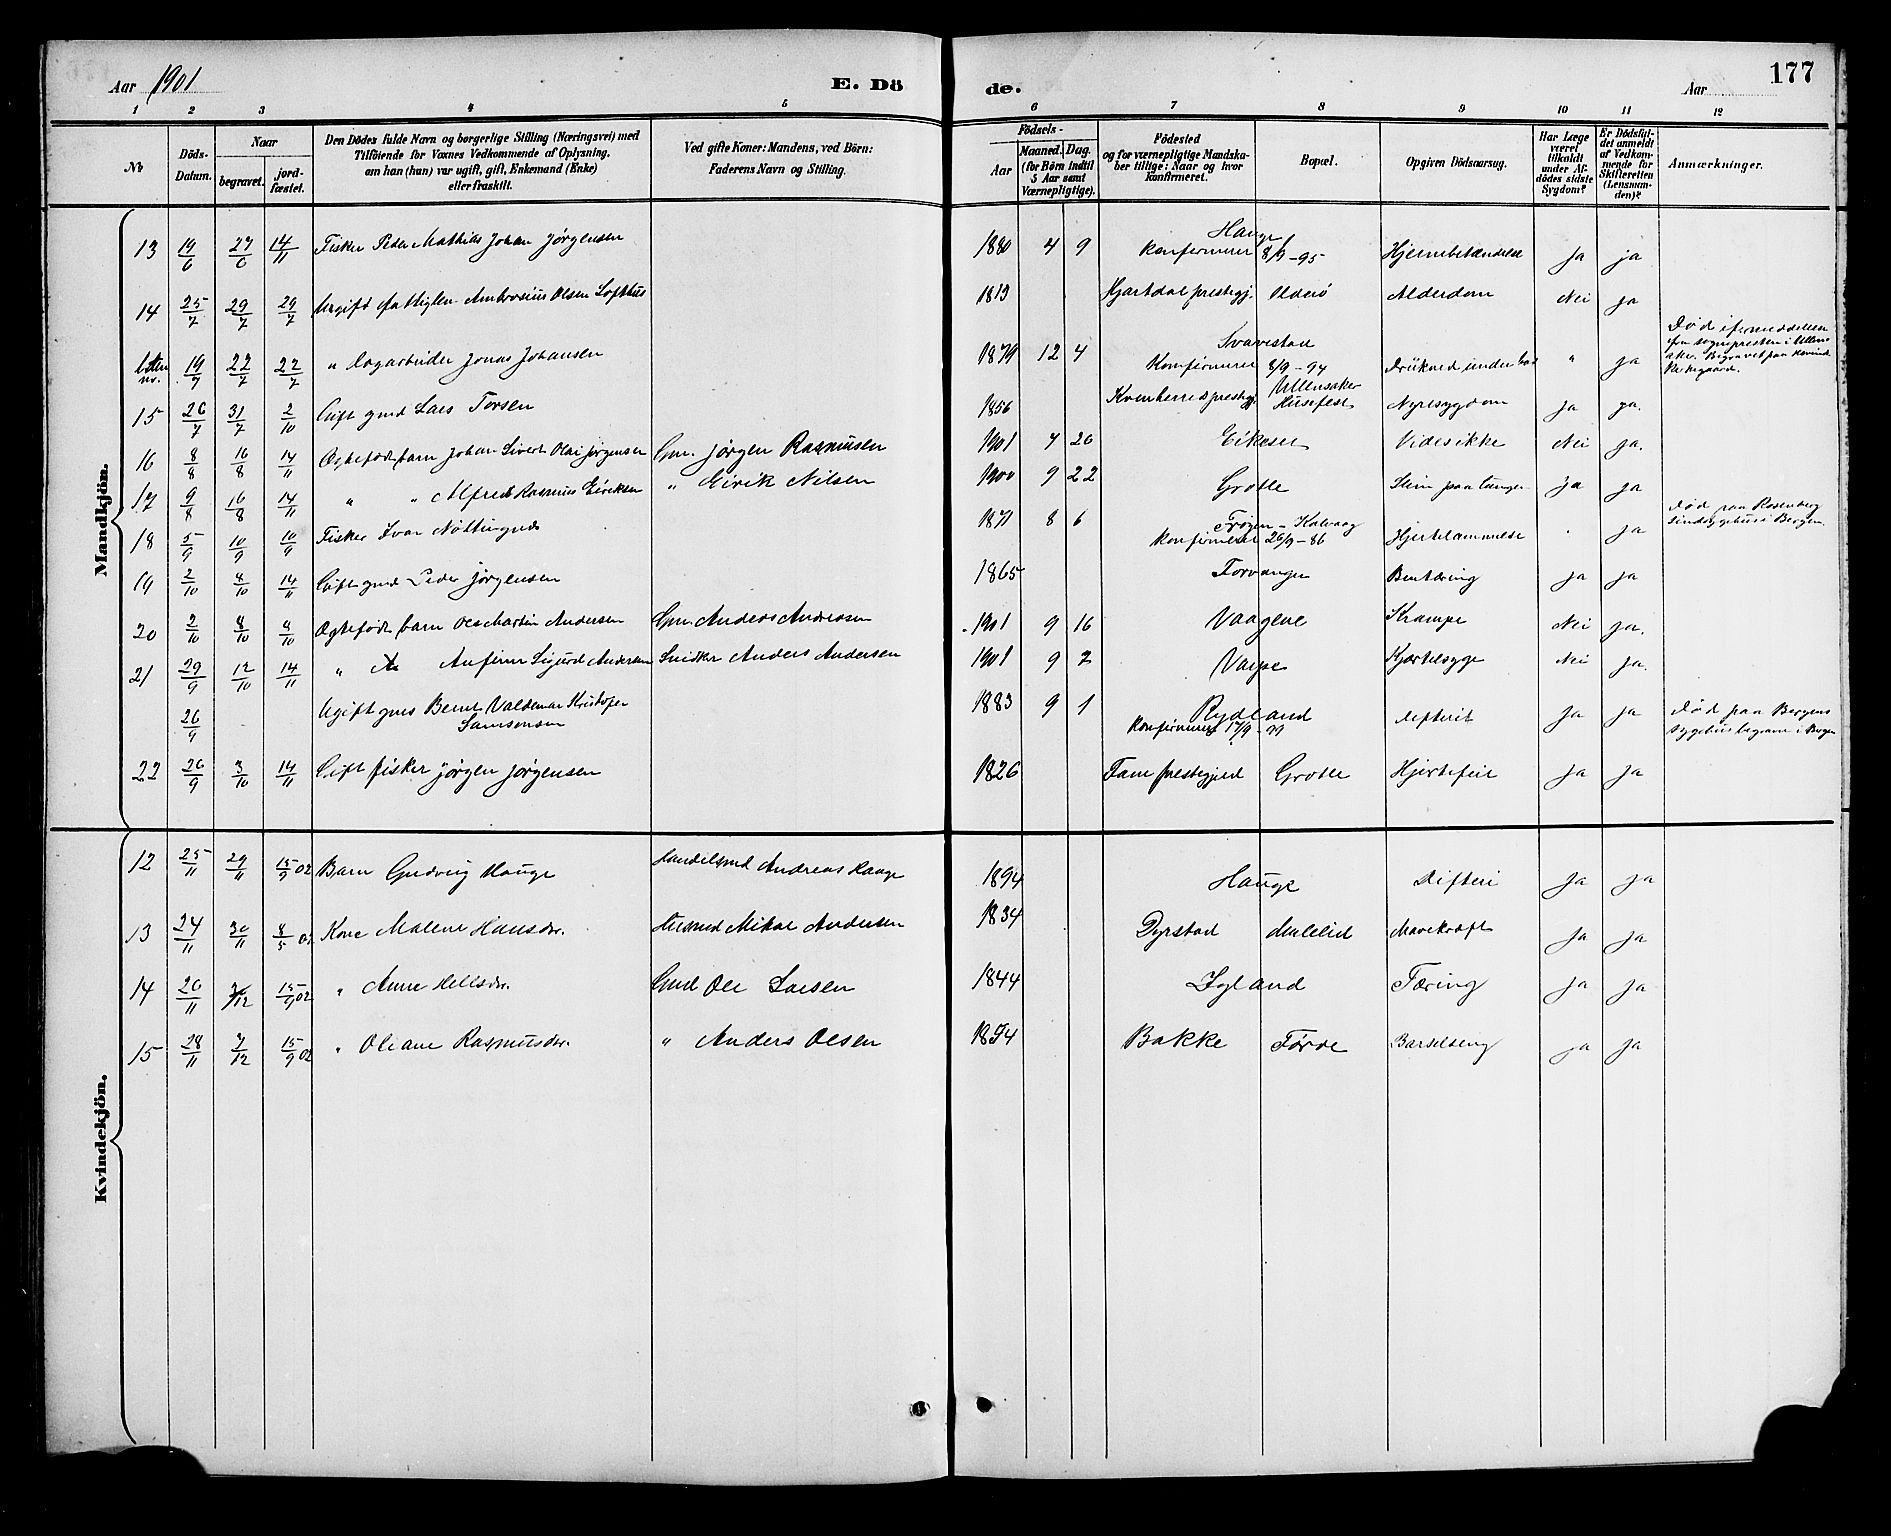 Aar 1901
E. Dö
de.
Aar
177
1 2 3 4 5 6 7 8 9 10 11 12
No
Döds-Datum.
Naar
begravet.
jord-fæstet.
Den Dödes fulde Navn og borgerlige Stilling (Næringsvei) med
Tilföiende for Voxnes Vedkommende af Oplysning,
om han (hun) var ugift, gift, Enkemand (Enke)
eller fraskilt.
Ved gifte Koner: Mandens, ved Börn:
Faderens Navn og Stilling.
Födsels-
Aar
Maaned. Dag.
(for Börn indtil
5 Aar samt
Værnepligtige).
Födested
og for værnepligtige Mandska-
ber tillige: Naar og hvor
konfirmeret.
Bopæl.
Opgiven Dödsaarsag.
Har Læge
været
tilkaldt
under Af-
dödes sidste
Sygdom?
Er Dödsfal-
det anmeldt
af Vedkom-
mende for
Skifteretten
(Lensman-
den)?
Anmærkninger.
Mandkjön.
13 19/6 27/6 14/11 Fisker Peder Mathias Johan Jørgensen 1880 4 9 Hauge konfirmeret 8/9-95 Hjernebetændelse Ja ja
14 25/7 29/7 29/7 Ugift Ambrosius Olsen Lofthus 1813 Hjartdal prestegj. Alderdom Nei ja
19/7 22/7 22/7 " Dagarbeider Jonas Johansen 1879 12 4 Svarestad Konfirmeret 8/9-94 Ullensaker Druknede under bad " ja Død if. meddelelse fra sognepresten i Ullensaker. Begravet paa Kirkegaard.
15 26/7 31/7 2/10 Gift gmd Lars Torsen 1856 Kvinherred prestegj. Husefest Nyresygdom Ja ja.
16 8/8 16/8 14/11 Ægtefødt barn Johan Sivert Olai Jørgensen Gm. Jørgen Rasmussen 1901 4 26 Eikeset Vides ikke Nei ja.
17 9/8 16/8 14/11 " " Alfred Rasmus Eiriksen " Eirik Nilsen 1900 9 22 Grotle Slim paa lunger Ja ja
18 5/9 10/9 10/9 Fisker Ivar Nøttingnes 1871 8 6 Frøyen - Kalvaag konfirmeret 26/9-86 Hjertelammelse ja Død paa Rosenberg Sindsygehus i Bergen.
19 2/10 8/10 14/11 Gift gmd Peder Jørgensen 1865 Bentæring Ja ja
20 2/10 8/10 8/10 Ægtefødt barn Ole Martin Andersen Gm. Anders Andreasen 1901 9 16 Vaagene Krampe Nei ja.
21 29/9 12/10 14/11 " Anfinn Sigurd Andersen Snidker Anders Andersen 1901 9 2 Varpe Kjertelsyge Nei ja.
26/9 Ugift gmds Bernt Valdemar Kristofer Samsonsen 1883 9 1 Rydland Konfirmeret 17/9- Difterit Ja ja Død paa Bergens sygehus begravet i Bergen
22 26/9 3/10 14/11 Gift fisker Jørgen Jørgensen 1826 Fane prestegjeld Grotle Hjertefeil Ja Ja
Kvindekjön.
12 25/11 29/11 15/9 02 Barn Gudvig Hauge Handelsmd Andreas Hauge 1894 Hauge Difteri Ja Ja
13 24/11 30/11 8/5 02 Kone Malene Hansdtr. Mikal Andersen 1834 Dyrstad Maleid Mavekræft Ja Ja
14 20/11 2/12 15/9 02 " Anne Gmd Ole Larsen 1844 Igland Tæring Ja Ja
15 28/11 7/12 15/9 02 " Oliane Rasmusdtr. " Anders Olsen 1874 Bakke Førde Barselseng Ja Ja